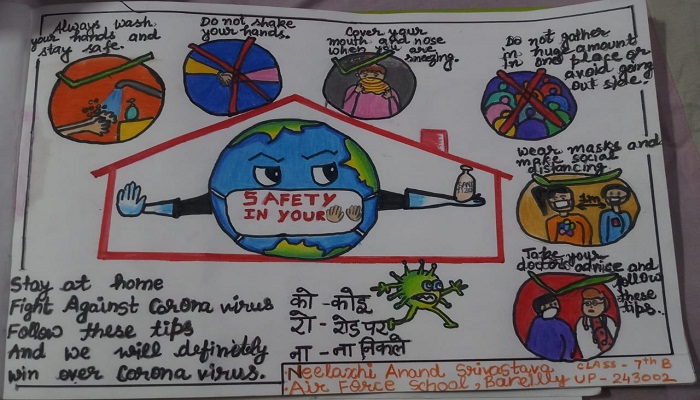 Always wash
your hands and
stay safe.
Do not shake
your hands.
Cover your
mouth and nose
when you are
sneezing.
Do not gather
in huge amount
in one place or
avoid going
out side.
wear masks and
make social
distancing
1m
Take your
doctors advice and
follow
these
tips..
SAFETY
IN YOUR
Stay at home
Fight Against Corona virus
Follow these tips
And we will definitely
win over Corona virus.
को - कोई
रो - रोड पर
ना - ना निकले
Neelaxhi Anand Srivastava CLASS - 7th B
Air Force School, Bareilly UP - 243002